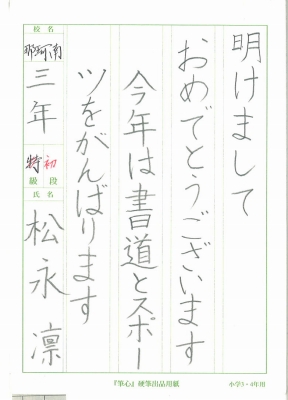 明けまして
おめでとうございます
今年は書道とスポー
ツをがんばります
校名
那珂南
三年
特 初
級 段
氏名
松永凛
『筆心』硬筆出品用紙
小学3・4年用